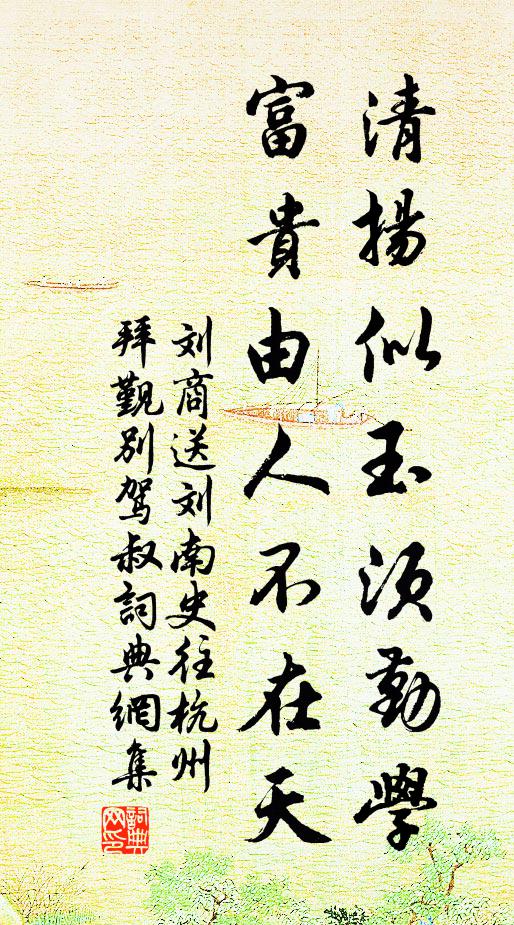 清揚似玉須勤學
富貴由人不在天
刘商送刘南史往杭州
拜觐別驾叔詞典網集
詞典
网印